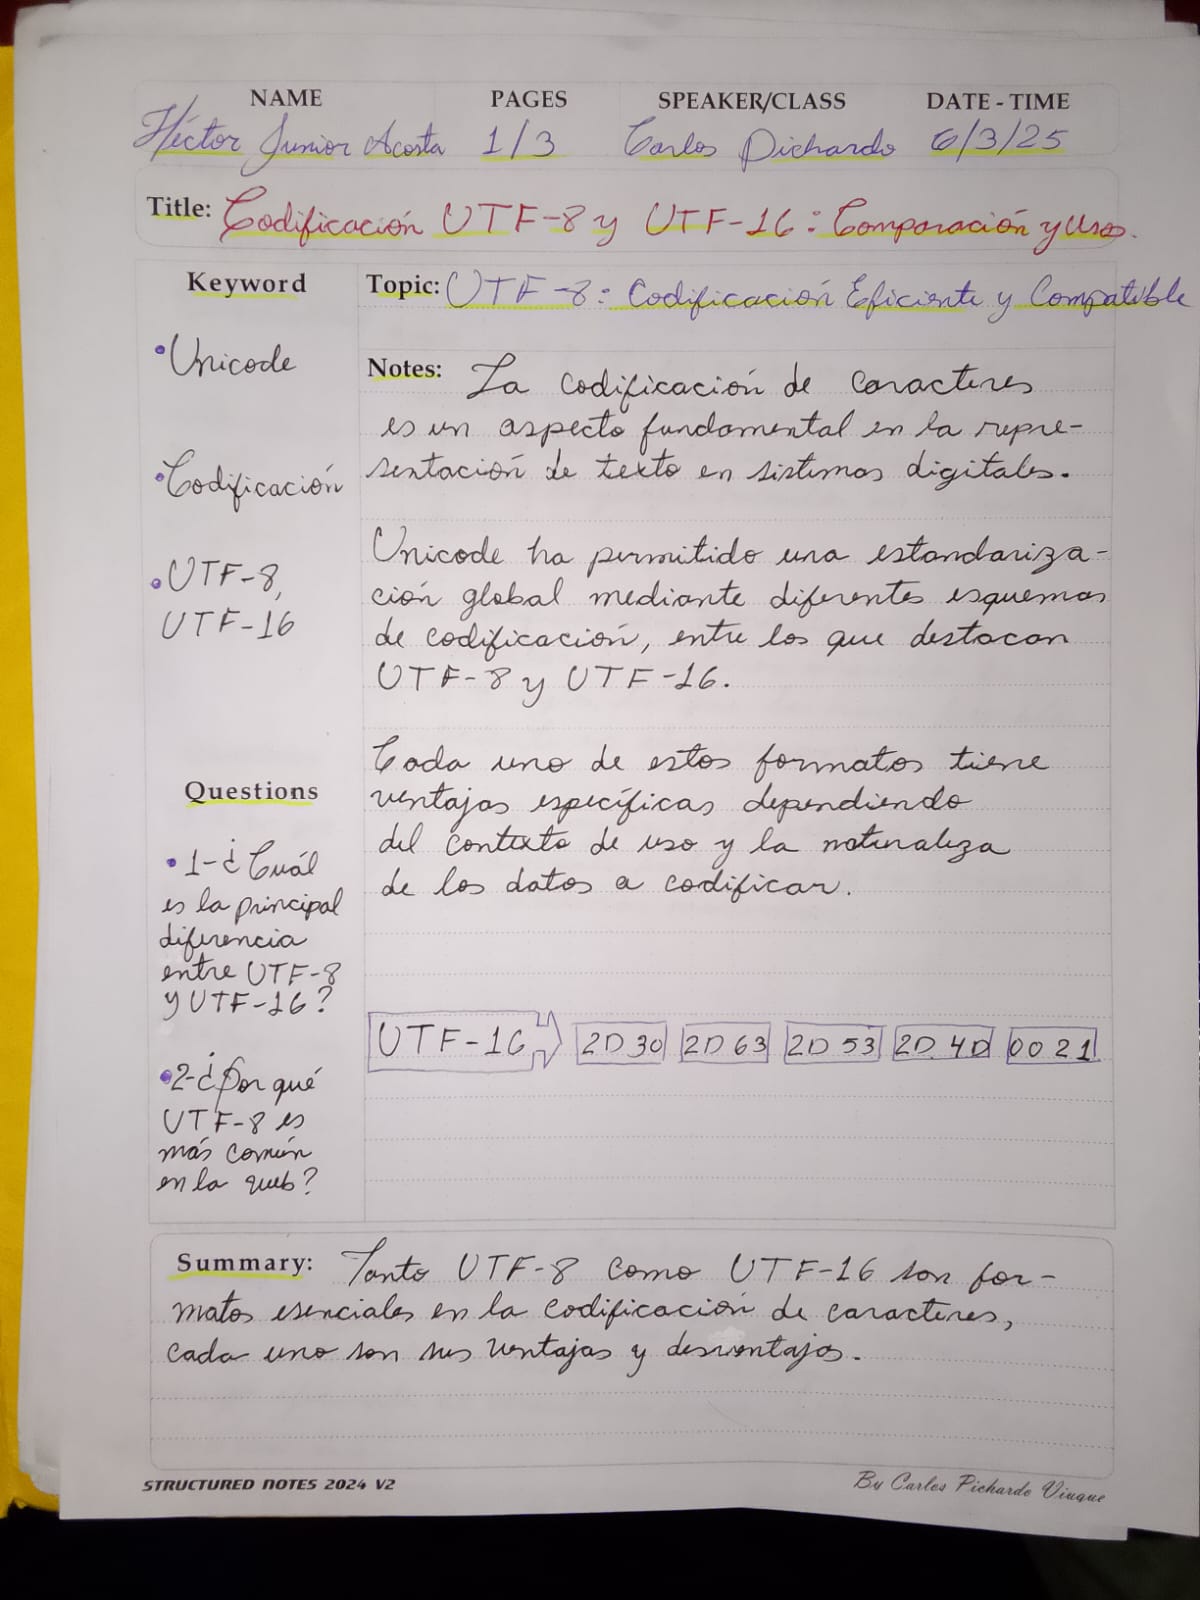 NAME PAGES SPEAKER/CLASS DATE - TIME
Héctor Junior Acosta 1/3 Carlos Pichardo 6/3/25
Title: Codificación UTF-8 y UTF-16: Comparación y Usos.
Keyword
• Unicode
• Codificación
• UTF-8,
UTF-16
Questions
• 1-¿Cuál
es la principal
diferencia
entre UTF-8
y UTF-16?
• 2-¿Por qué
UTF-8 es
más común
en la web?
Topic: UTF-8: Codificación Eficiente y Compatible
Notes: La codificación de caracteres
es un aspecto fundamental en la repre-
sentación de texto en sistemas digitales.
Unicode ha permitido una estandariza-
ción global mediante diferentes esquemas
de codificación, entre los que destacan
UTF-8 y UTF-16.
Cada uno de estos formatos tiene
ventajas específicas dependiendo
del contexto de uso y la naturaleza
de los datos a codificar.
UTF-16 2D 30 2D 63 2D 53 2D 4D 00 21
Summary: Tanto UTF-8 como UTF-16 son for-
matos esenciales en la codificación de caracteres,
cada uno son sus ventajas y desventajas.
STRUCTURED NOTES 2024 V2
By Carlos Pichardo Viuque